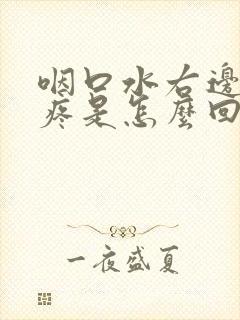 咽口水右邊
疼是怎麼回
一夜盛夏